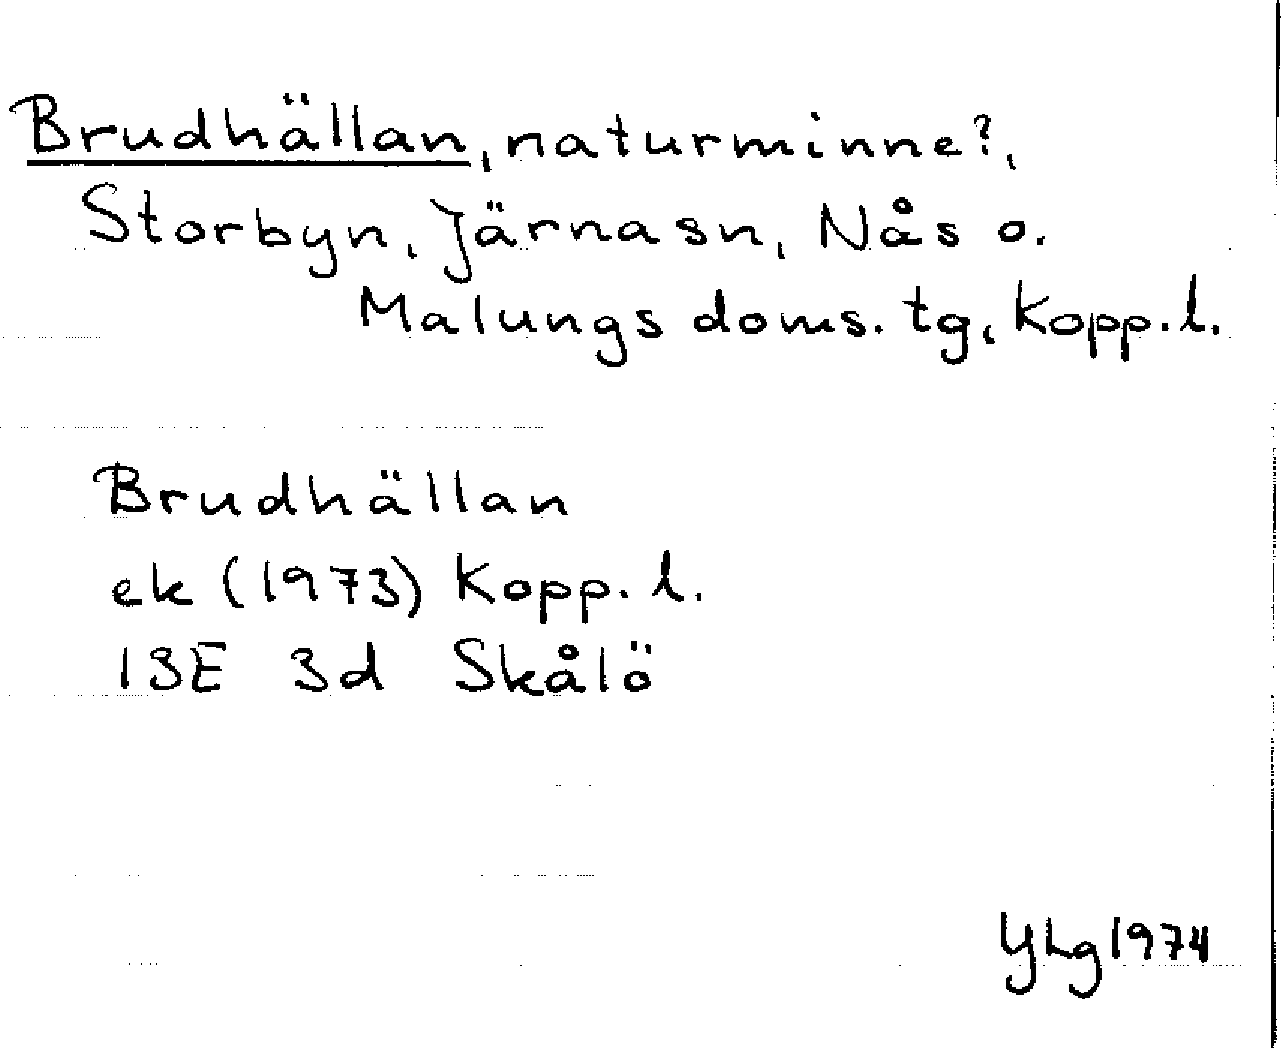 Brudhällan, naturminne?,
Storbyn, Järnasn, Nås o.
Malungs doms. tg, Kopp. l.
Brudhällan
ek (1973) Kopp. l.
13E 3d Skålö
YLg 1974